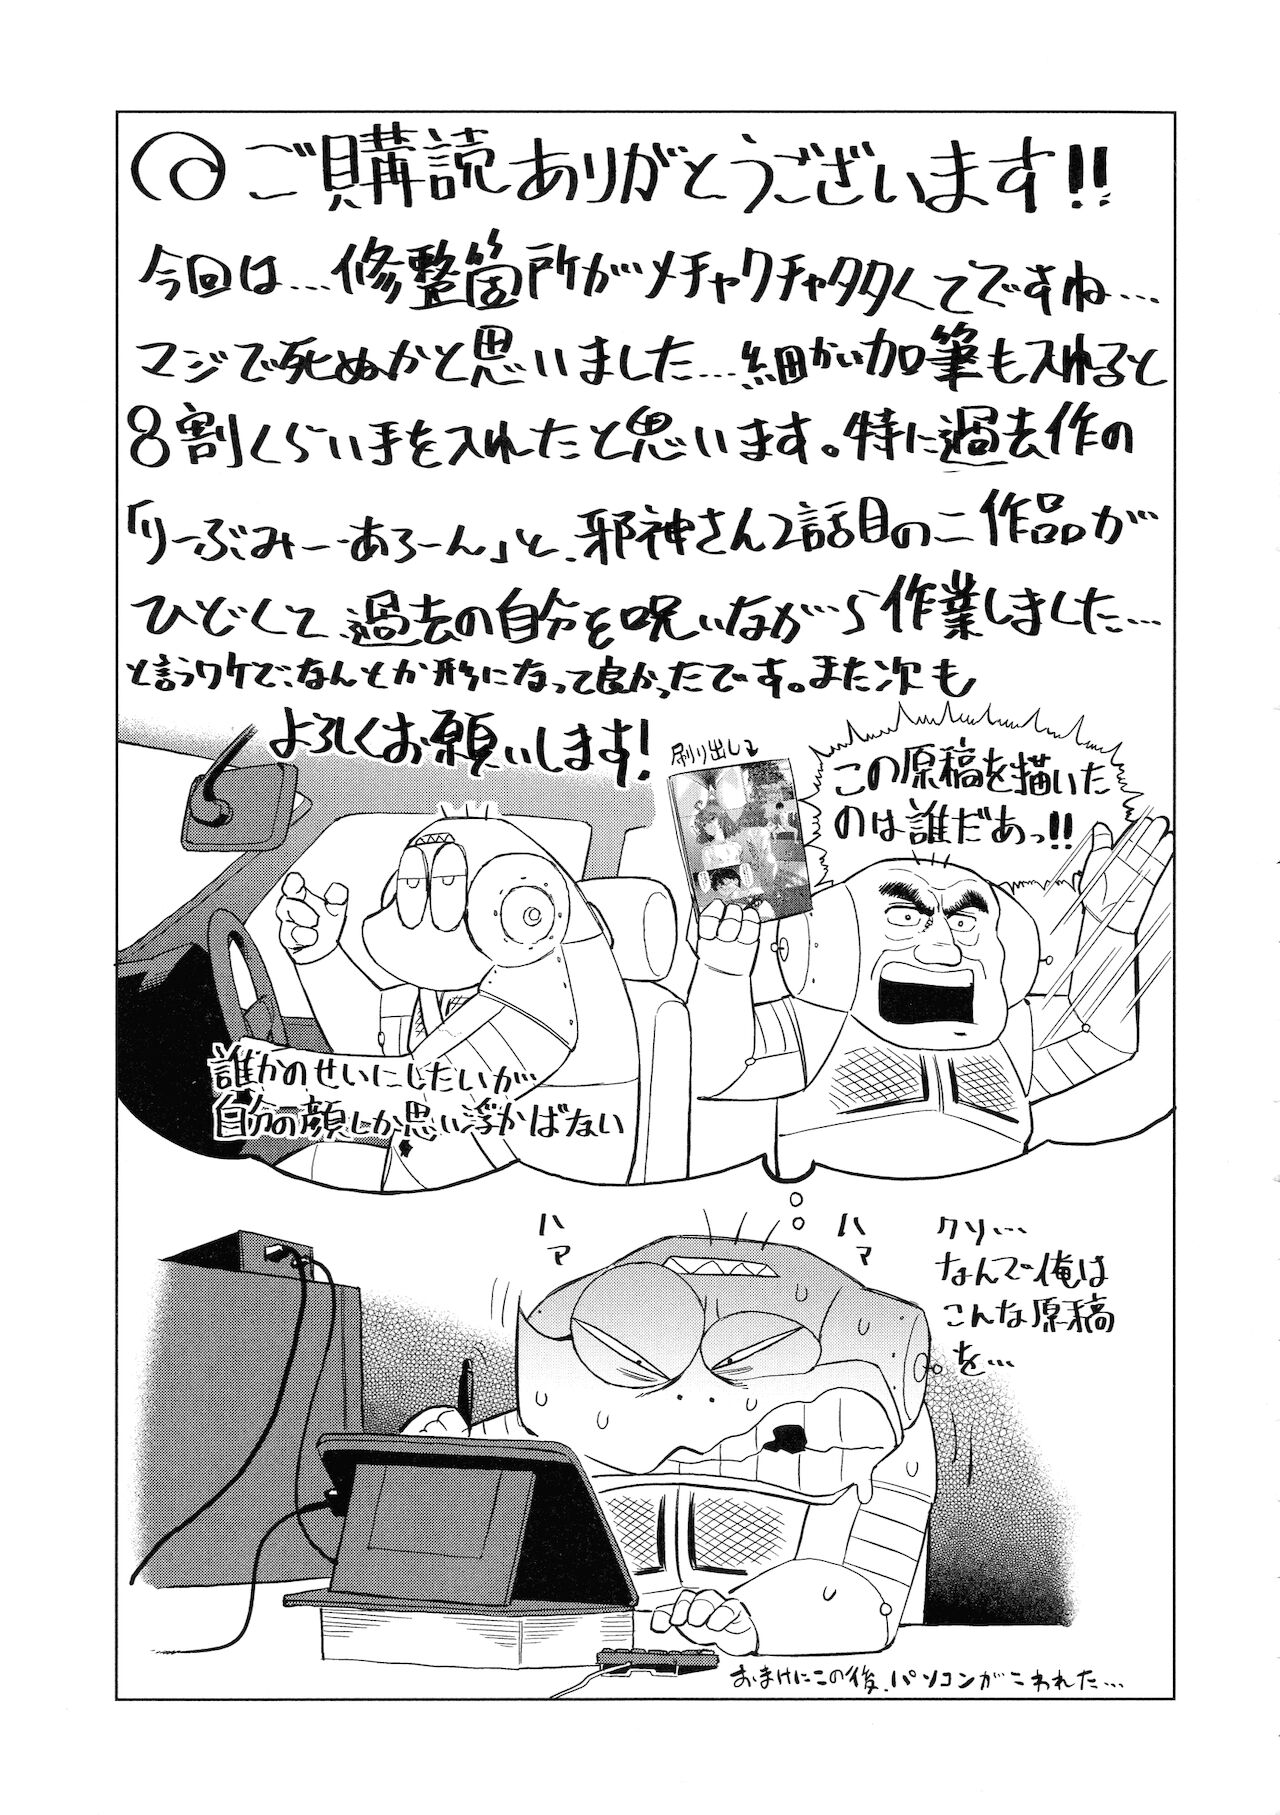 ご購読ありがとうございます!!
今回は…修整箇所がメチャクチャ多くてですね…
マジで死ぬかと思いました…細かい加筆も入れると
8割くらい手を入れたと思います。特に過去作の
「りーぶみー・あろーん」と、邪神さん2話目の二作品が
ひどくて、過去の自分を呪いながら作業しました…
と言うワケで、なんとか形になって良かったです。また次も
よろしくお願いします!
刷り出し
この原稿を描いた
のは誰だあっ!!
誰かのせいにしたいが…
自分の顔しか思い浮かばない
ハァ
ハァ
クソ…
なんで俺は
こんな原稿
を…
おまけにこの後、パソコンがこわれた…